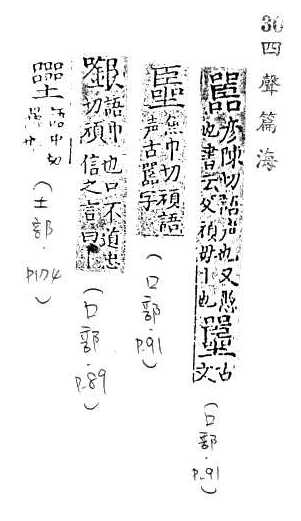 四聲篇海
嚚 陳切語声也又愚也書云父頑母丨也 古文 (口部.P.91)
魚巾切頑語声古嚚字 (口部.P.91)
語巾切頑也口不道忠信之言曰丨 (口部.P.89)
語巾切 (土部.P.174)